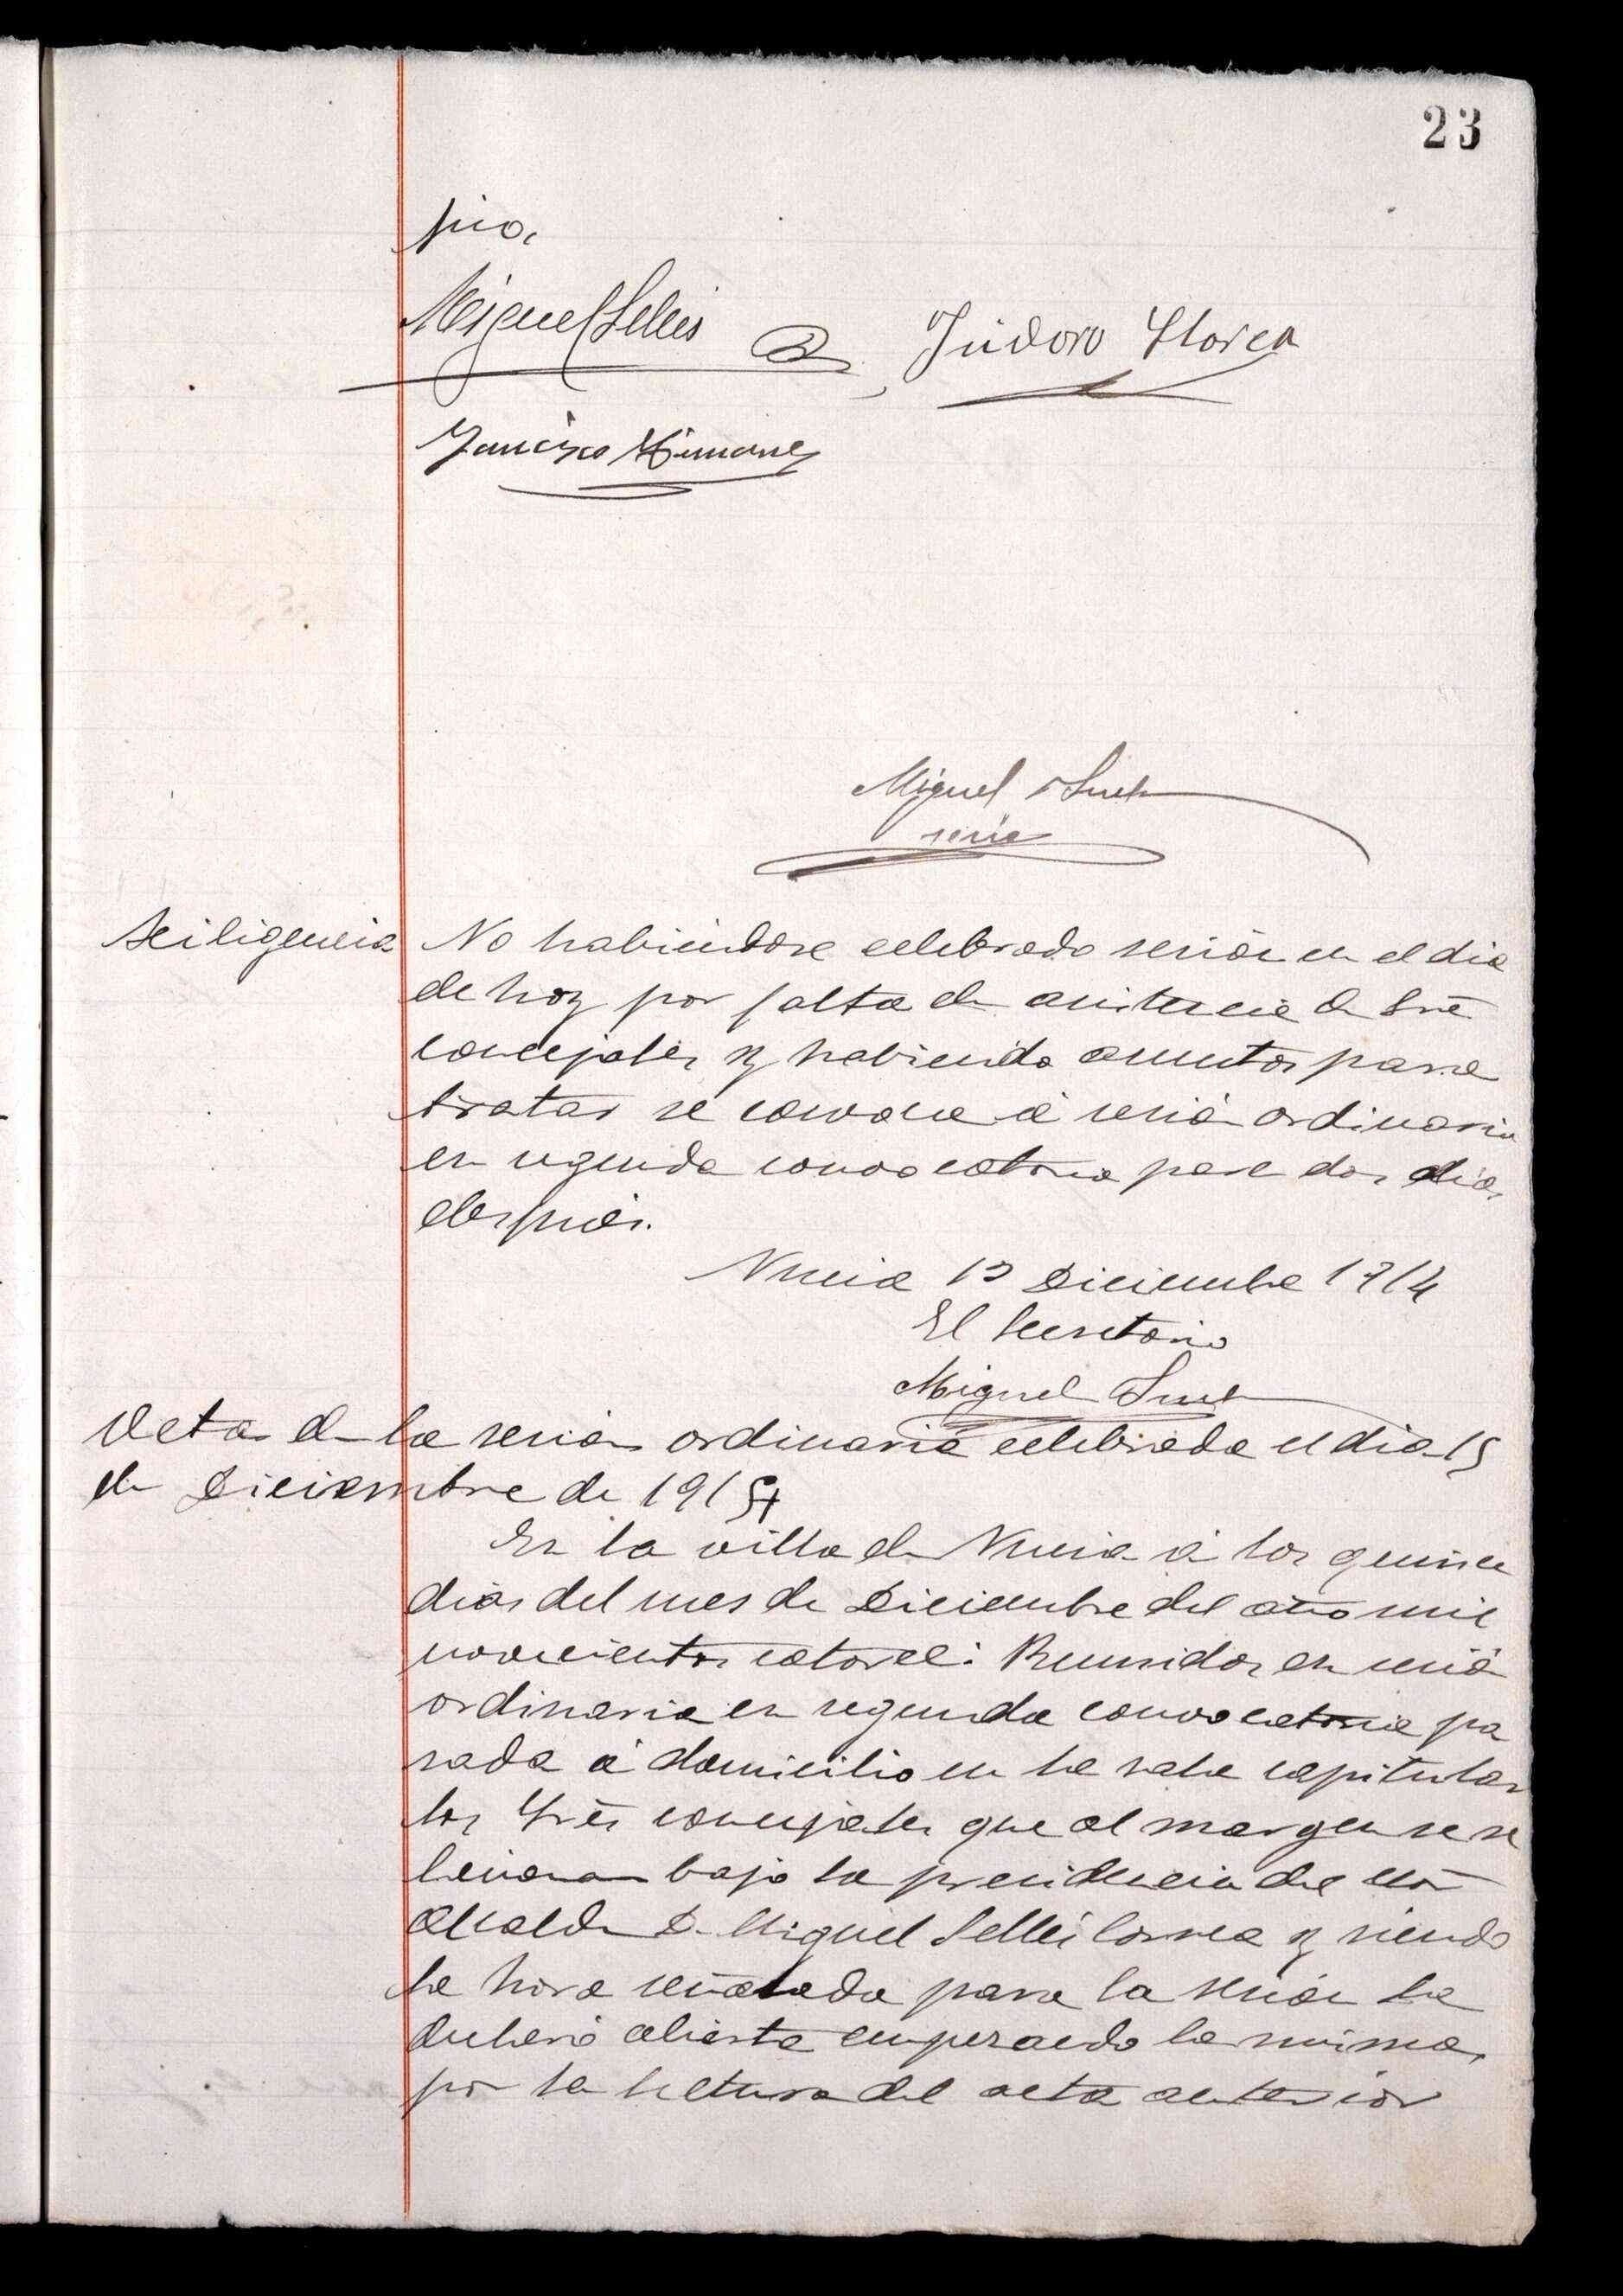 23
fico.
Miguel Selles
Isidoro Llorca
Francisco Ximenez
Miguel Such
srio
Diligencia
No habiendose celebrado sesión en el dia
de hoy por falta de asistencia de Sres
concejales y habiendo asuntos para
tratar se convoca á sesión ordinaria
en segunda convocatoria para dos dias
después.
Nucia 13 Diciembre 1914
El Secretario
Miguel Such
Acta de la sesion ordinaria celebrada el dia 15
de Diciembre de 1914
En la villa de Nucia á los quince
dias del mes de Diciembre del año mil
novecientos catorce: Reunidos en sesión
ordinaria en segunda convocatoria pa
sada á domicilio en la sala capitular
los Sres concejales que al margen se re
lacionan bajo la presidencia del Sor
Alcalde D. Miguel Sellés Llorca y siendo
la hora señalada para la sesión la
declaró abierta empezando la misma,
por la lectura del acta anterior